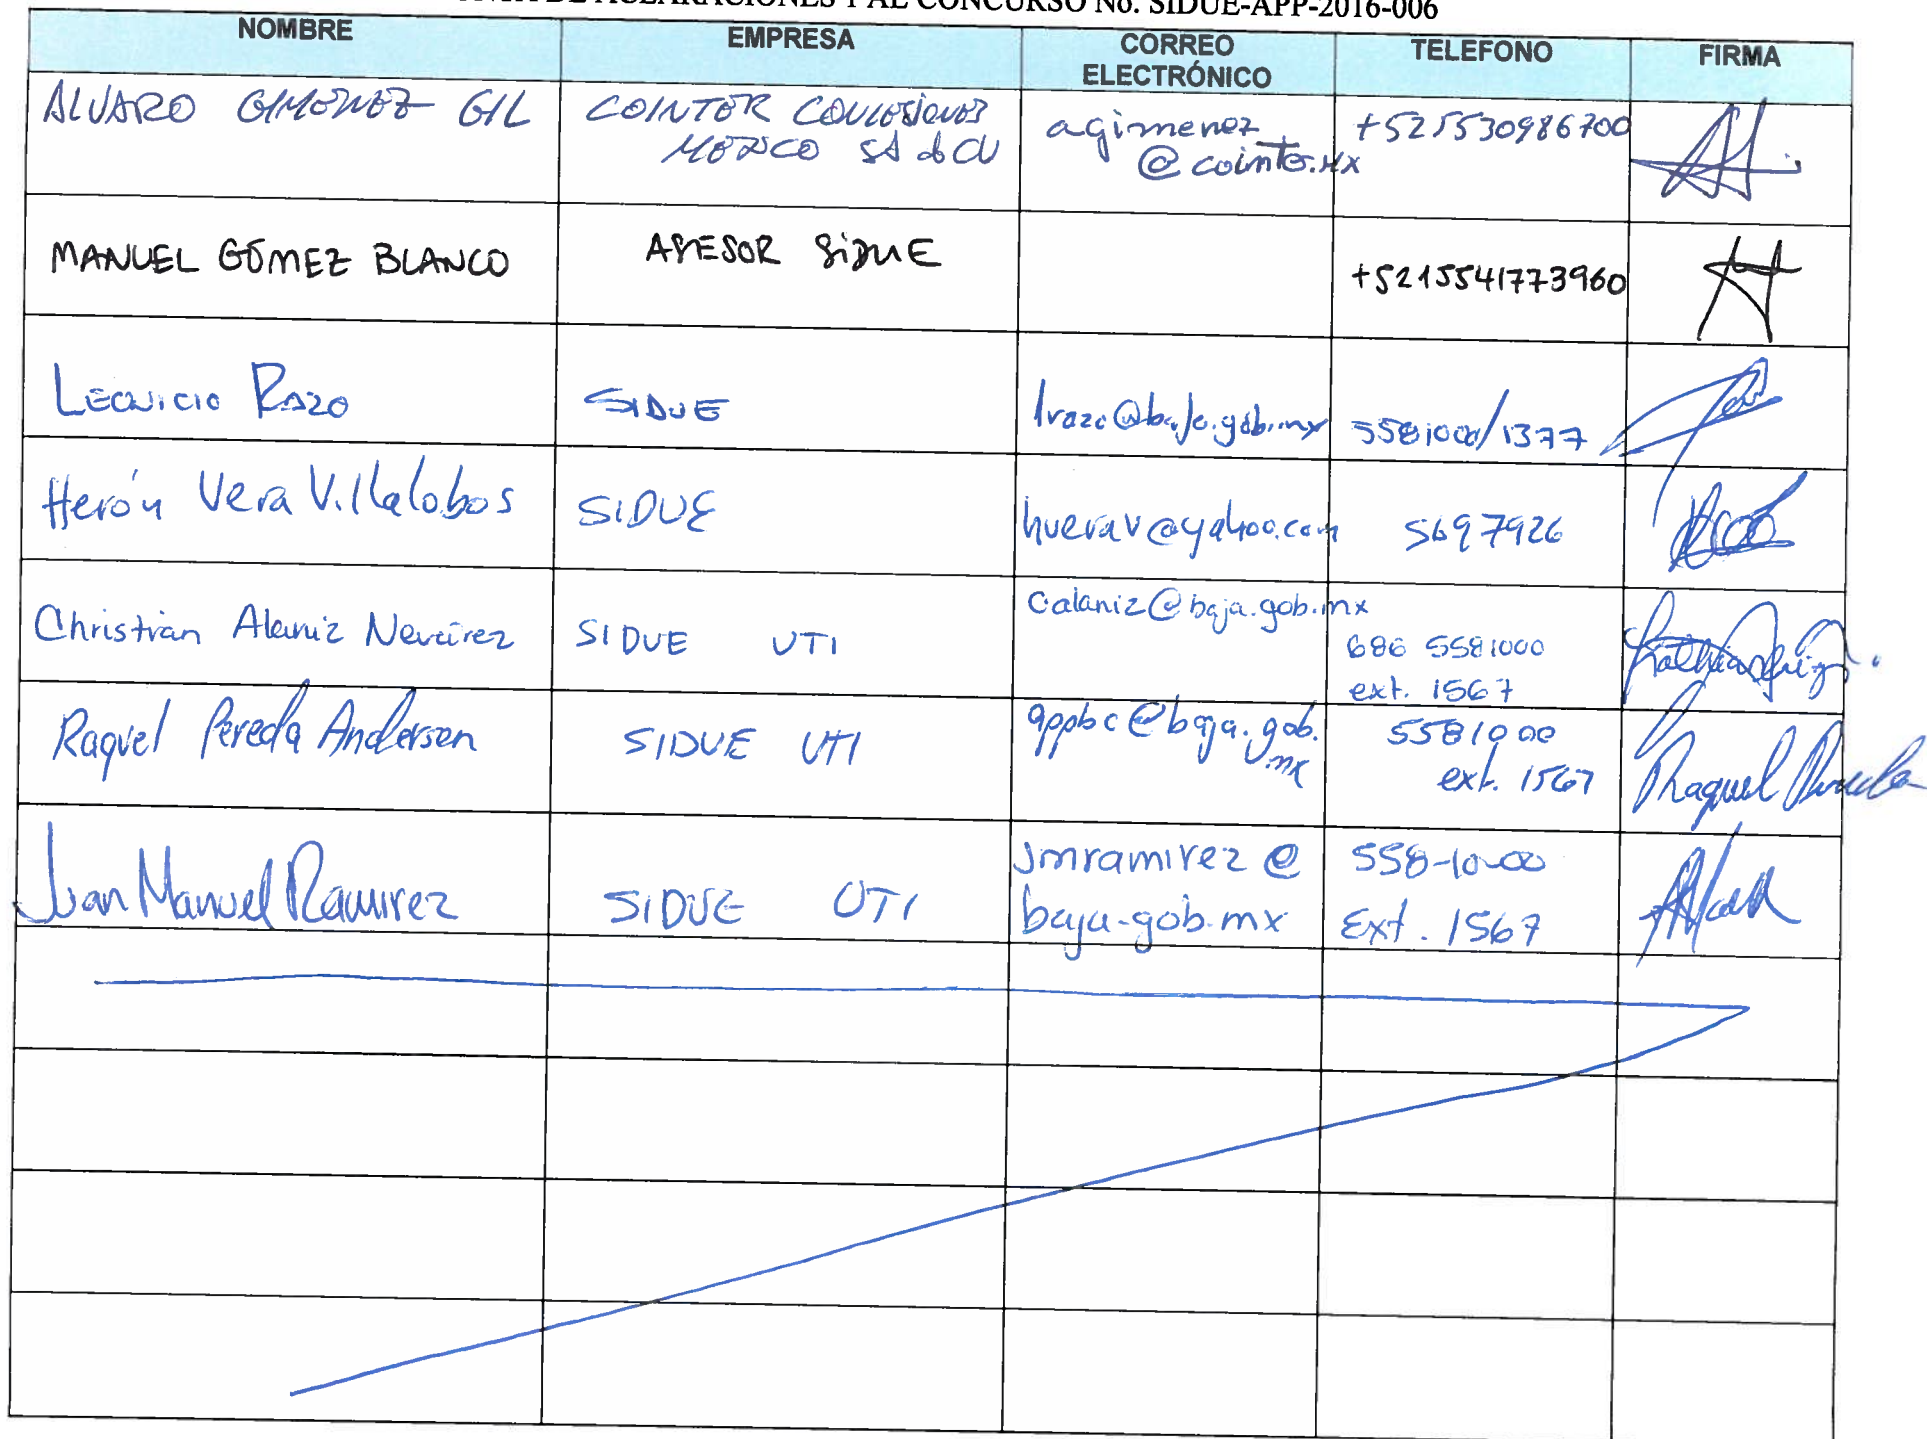 DE ACLARACIONES Y AL CONCURSO No. SIDUE-APP-2016-006
NOMBRE EMPRESA CORREO ELECTRÓNICO TELEFONO FIRMA
ALVARO GIMENEZ GIL COINTER CONCESIONES +5215530986700
MEXICO SA de CV agimenez
@cointer.mx
MANUEL GÓMEZ BLANCO ASESOR SIDUE +5215541773960
LEONICIO RAZO SIDUE lrazo@baja.gob.mx 5581000/1377
Herón Vera Villalobos SIDUE hverav@yahoo.com 5697926
Christian Alaniz Nevárez SIDUE UTI calaniz@baja.gob.mx 686 5581000
ext. 1567
Raquel Pereda Andersen SIDUE UTI appbc@baja.gob.mx 5581000
ext. 1567
Raquel Pereda
Juan Manuel Ramirez SIDUE UTI jmramirez@ 558-10-00
baja.gob.mx Ext. 1567